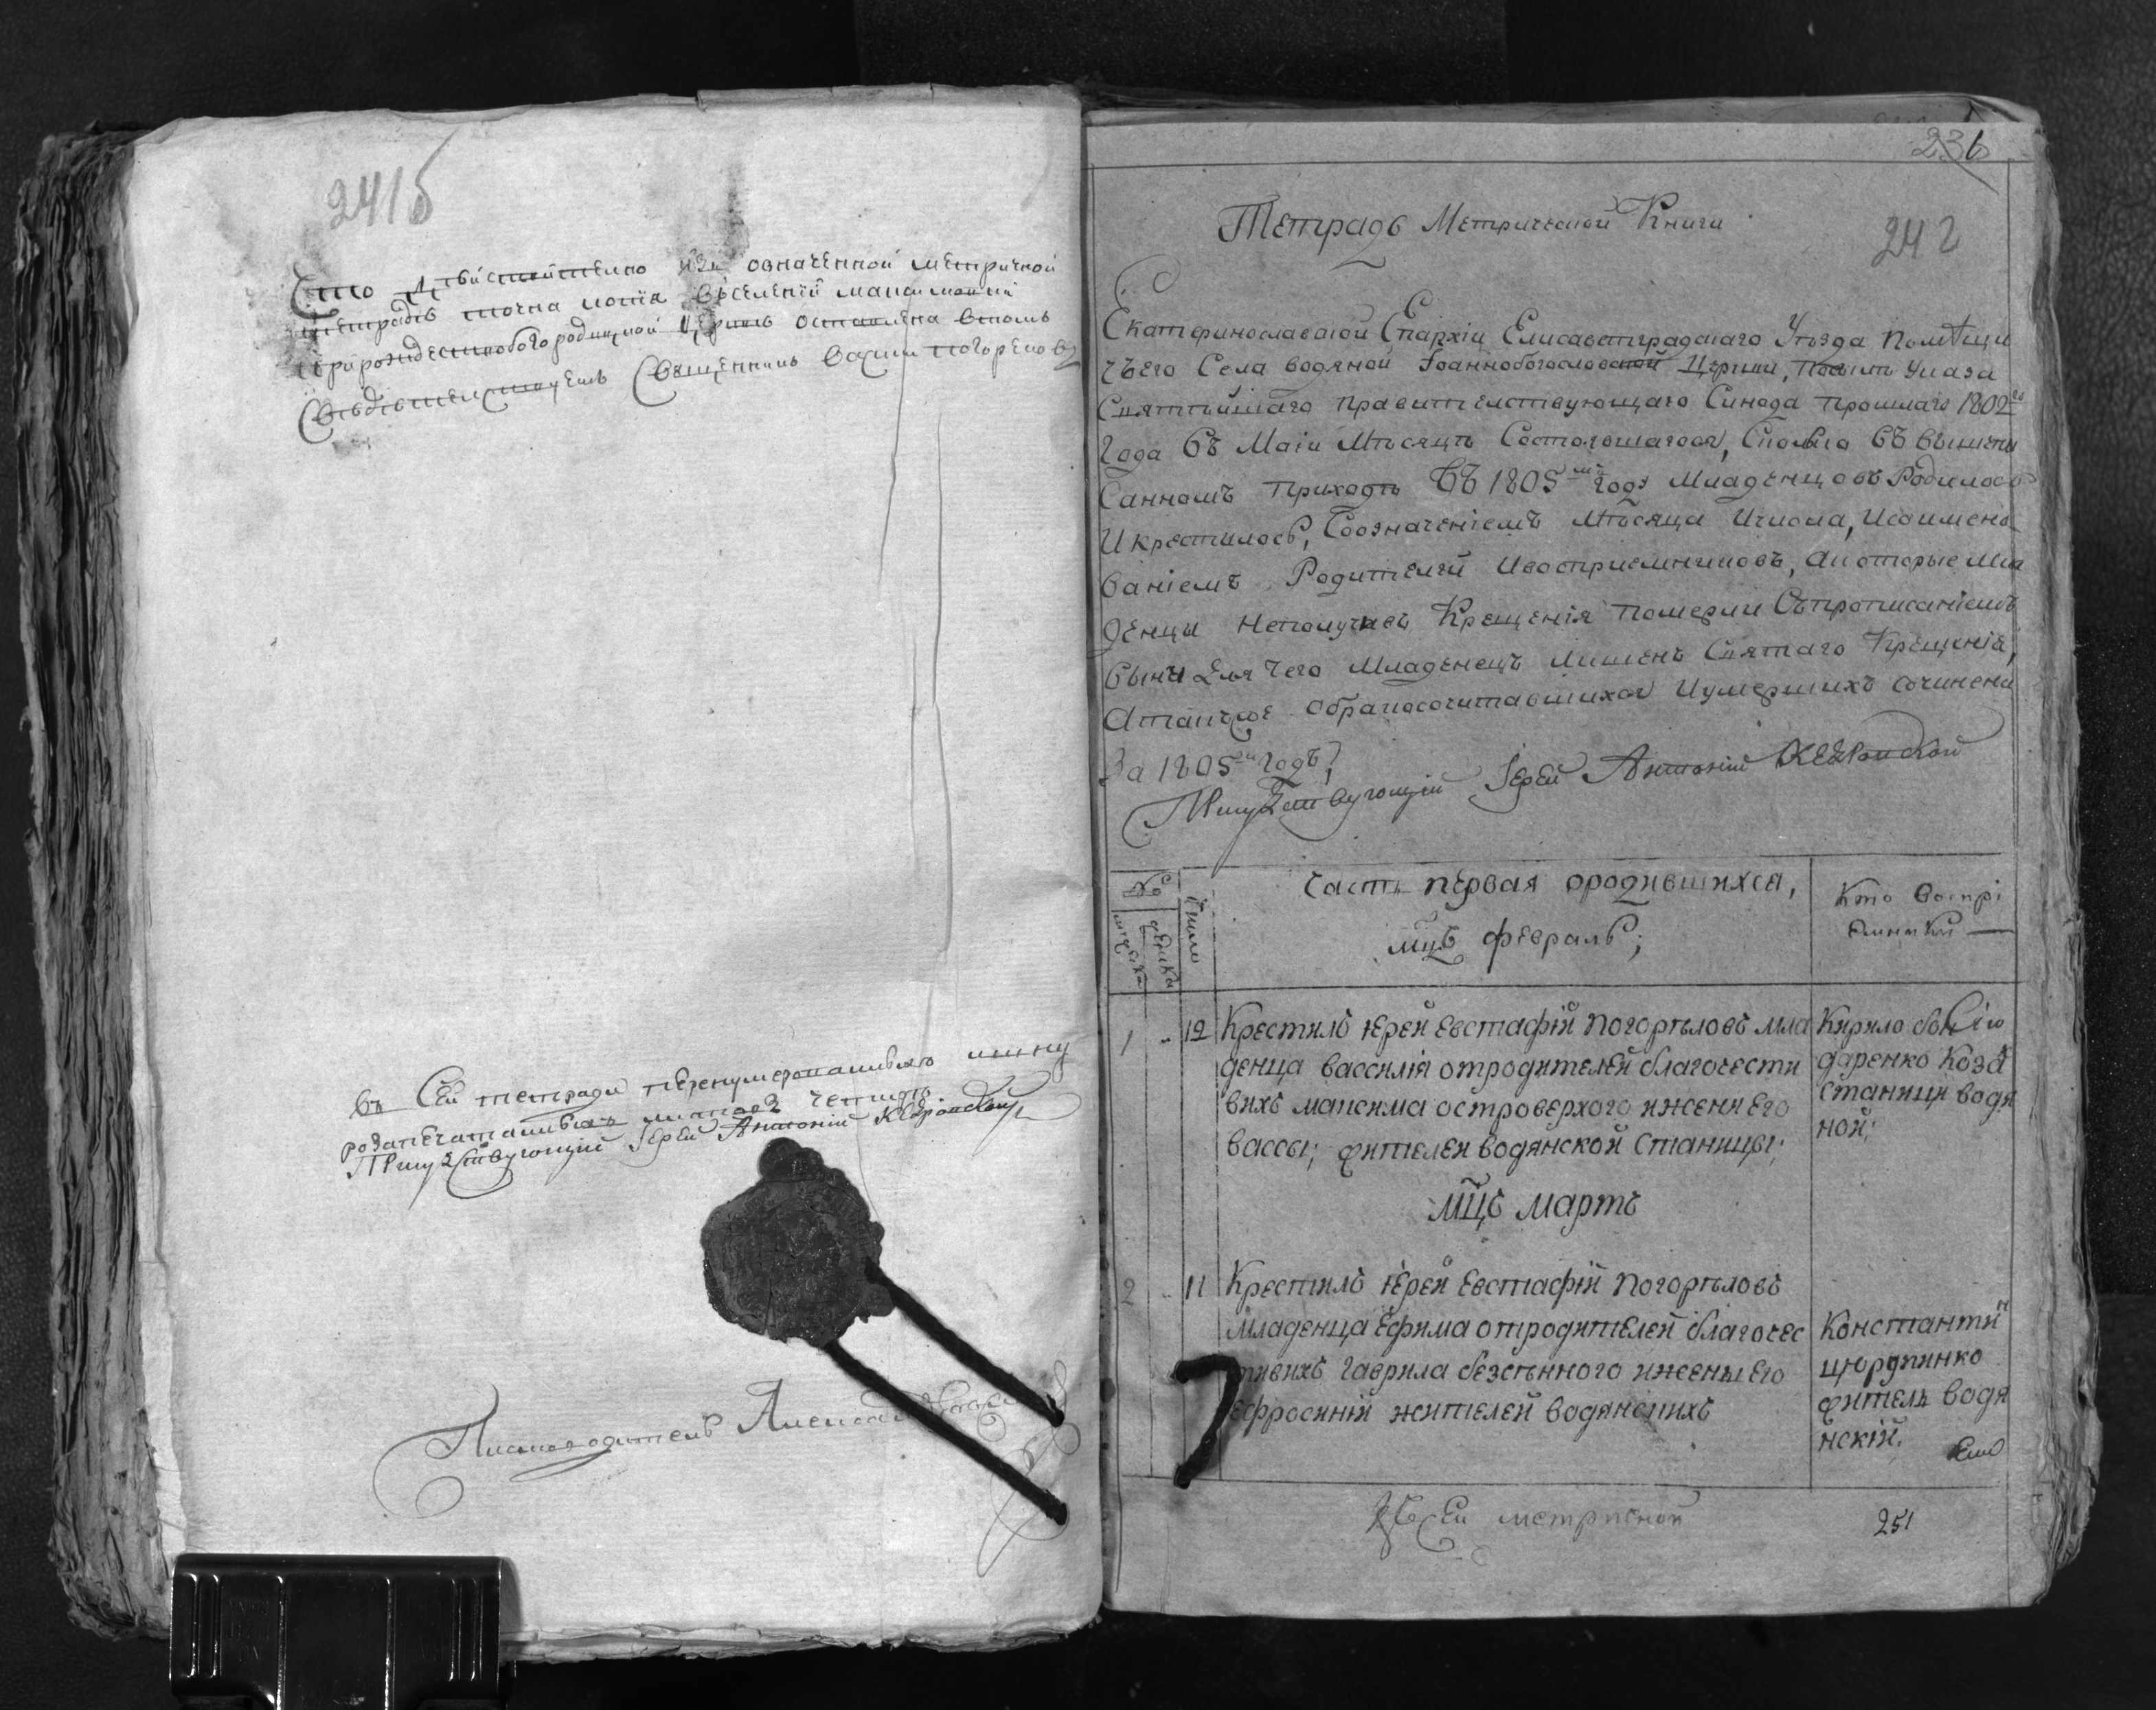 241 б
Что действително изъ означенной метричной
тетради точна копія въ селеній
при рождествобогородицкой церквѣ оставлена в томъ
Свѣдѣтелствуемъ Священникъ
въ Сей тетради перенумерованныхъ
ропечатанныхъ листовъ четыре
Присудствующій Іерей Антоній
Писмоводитель
236
Тетрадь Метрической Книги
242
Екатеринославской Епархіи Елисаветградскаго Уѣзда Помѣщи
чьего Села водяной Іоаннобогословской Церкви, Посилѣ Указа
Святѣйшаго правителствующаго Синода прошлаго 1802го
Года Въ Маіи Мѣсяцѣ Состоявшагося, Сколко Въ вышепи
Санномъ приходѣ Въ 1805мъ году Младенцовъ Родилось
И крестилось, Соозначеніемъ Мѣсяца Ичисла, Исоимено
ваніемъ Родителей Ивосприемниковъ, Акоторые Мла
денцы неполучивъ Крещенія померли Съпрописаніемъ
вины Для чего Младенецъ лишенъ Святаго Крещенія,
Атакъже Обракосочитавшихся Иумершихъ сочинена
За 1805й годъ;
Присудствующій Іерей Антоній
№
число
часть первая ородившихся,
мцъ февраль;
Кто Воспрі
емники
мужеска
женска
1 12 Крестилъ іерей Евстафій Погорѣловъ мла
денца василія отродителей благочести
вихъ максима островерхого ижени Его
вассы; жителей водянской станицы;
Кирило
даренко Коза
станици водя
ной;
Мцъ Мартъ
2 11 Крестилъ іерей Евстафій Погорѣловъ
младенца Ефима отродителей благочес
тивихъ гаврила безсѣнного ижены Его
ефросиній жителей водянскихъ
Константи
цюрупинко
житель водя
нскій.
Къ Сей метричной
251